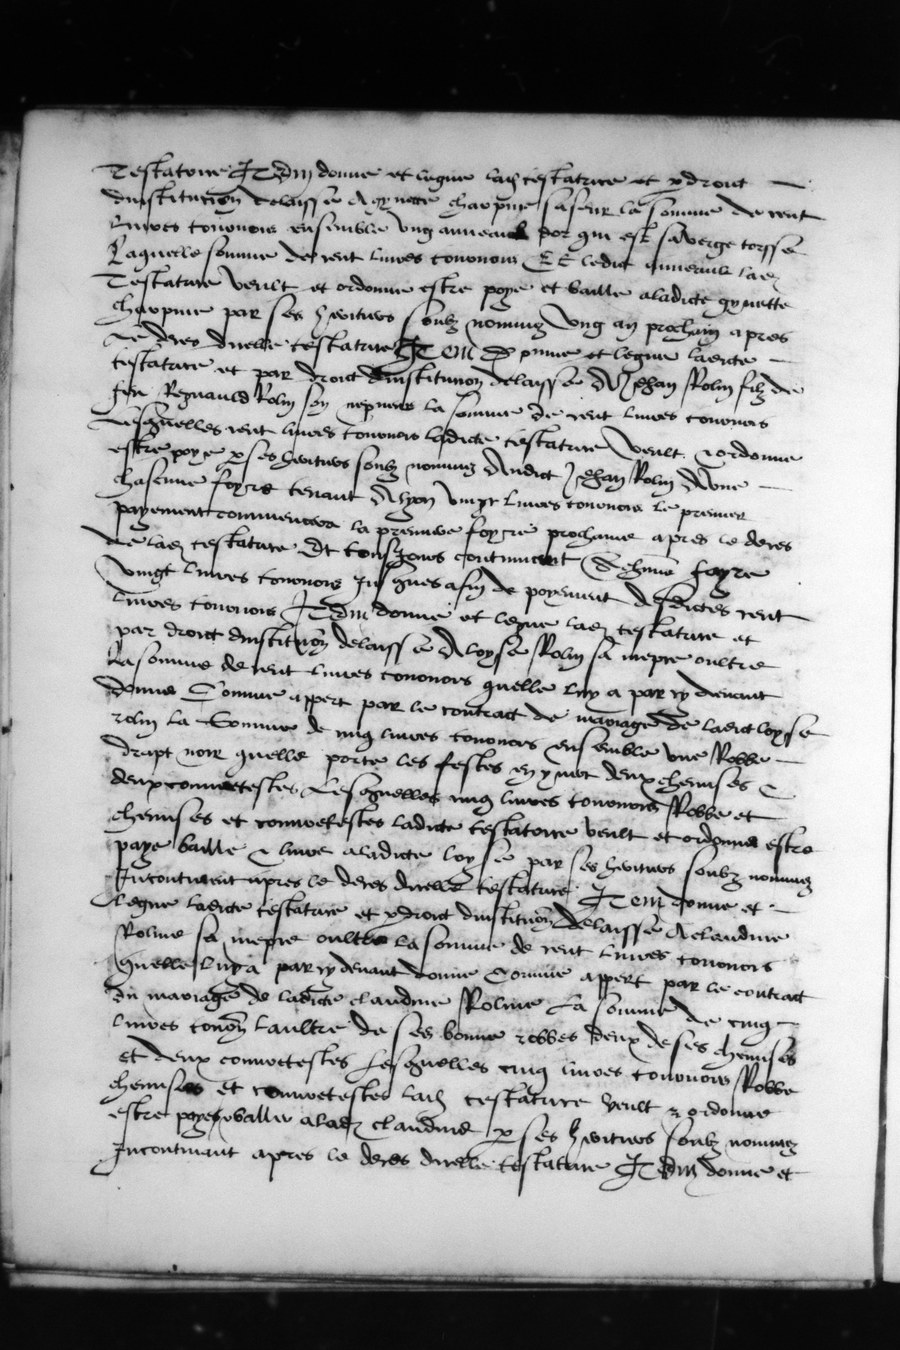 Testatrice Item donne et legue lad testatrice et p droict
dinstitution delaisse A gynette charpine sa seur la somme de cent
livres tournois ensemble ung anneau dor qui est sa verge torsse
Laquelle somme de cent livres tournois Et ledict anneaulx lad
Testatrice veult et ordonne estre paye et baille a ladicte gynette
charpine par ses heritiers soubz nommez ung an prochain apres
le deces dicelle testatrice Item donne et legue ladicte
testatrice et par droict dinstitution delaisse A Jehan Rolin filz de
feu Regnauld Rolin son nepveu la somme de cent livres tournois
Lesquelles cent livres tournois ladicte testatrice veult & ordonne
estre paye p ses heritiers soubz nommez Audict Jehan Rolin A une
chascune foyre tenant A lyon vingt livres tournois le premier
payement commencera la premiere foyre prochaine apres le deces
de lad testatrice Et tousjours continuent chune foyre
vingt livres tournois Jusques a fin de payement desdictes cent
livres tournois Item donne et legue lad testatrice et
par droict dinstitution delaisse A loyse Rolin sa niepce oultre
La somme de cent livres tournois quelle luy a par cy devant
donne Comme appert par le contract de mariage de ladict loyse
rolin la somme de cinq livres tournois ensemble une Robbe
drapt noir quelle porte les festes en yver deux chemises &
deux couvretestes Lesquelles cinq livres tournois Robbe et
chemises et couvretestes ladicte testatrice veult et ordonne estre
paye baille & livre a ladicte loyse par ses heritiers soubz nommez
Incontinent apres le deces dicelle testatrice Item donne et
legue ladicte testatrice et p droict dinstitution delaisse A claudine
Roline sa niepce oultre la somme de cent livres tournois
quelle luy a par cy devant donne Comme appert par le contract
du mariage de ladicte claudine Roline La somme de cinq
livres tournois laultre de ses bonne robbes deux de ses chemises
et deux couvretestes Lesquelles cinq livres tournois Robbe
chemises et couvretestes lad testatrice veult & ordonne
estre paye & baille a lad claudine p ses heritiers soubz nommez
Incontinant apres le deces dicelle testatrice Item donne et